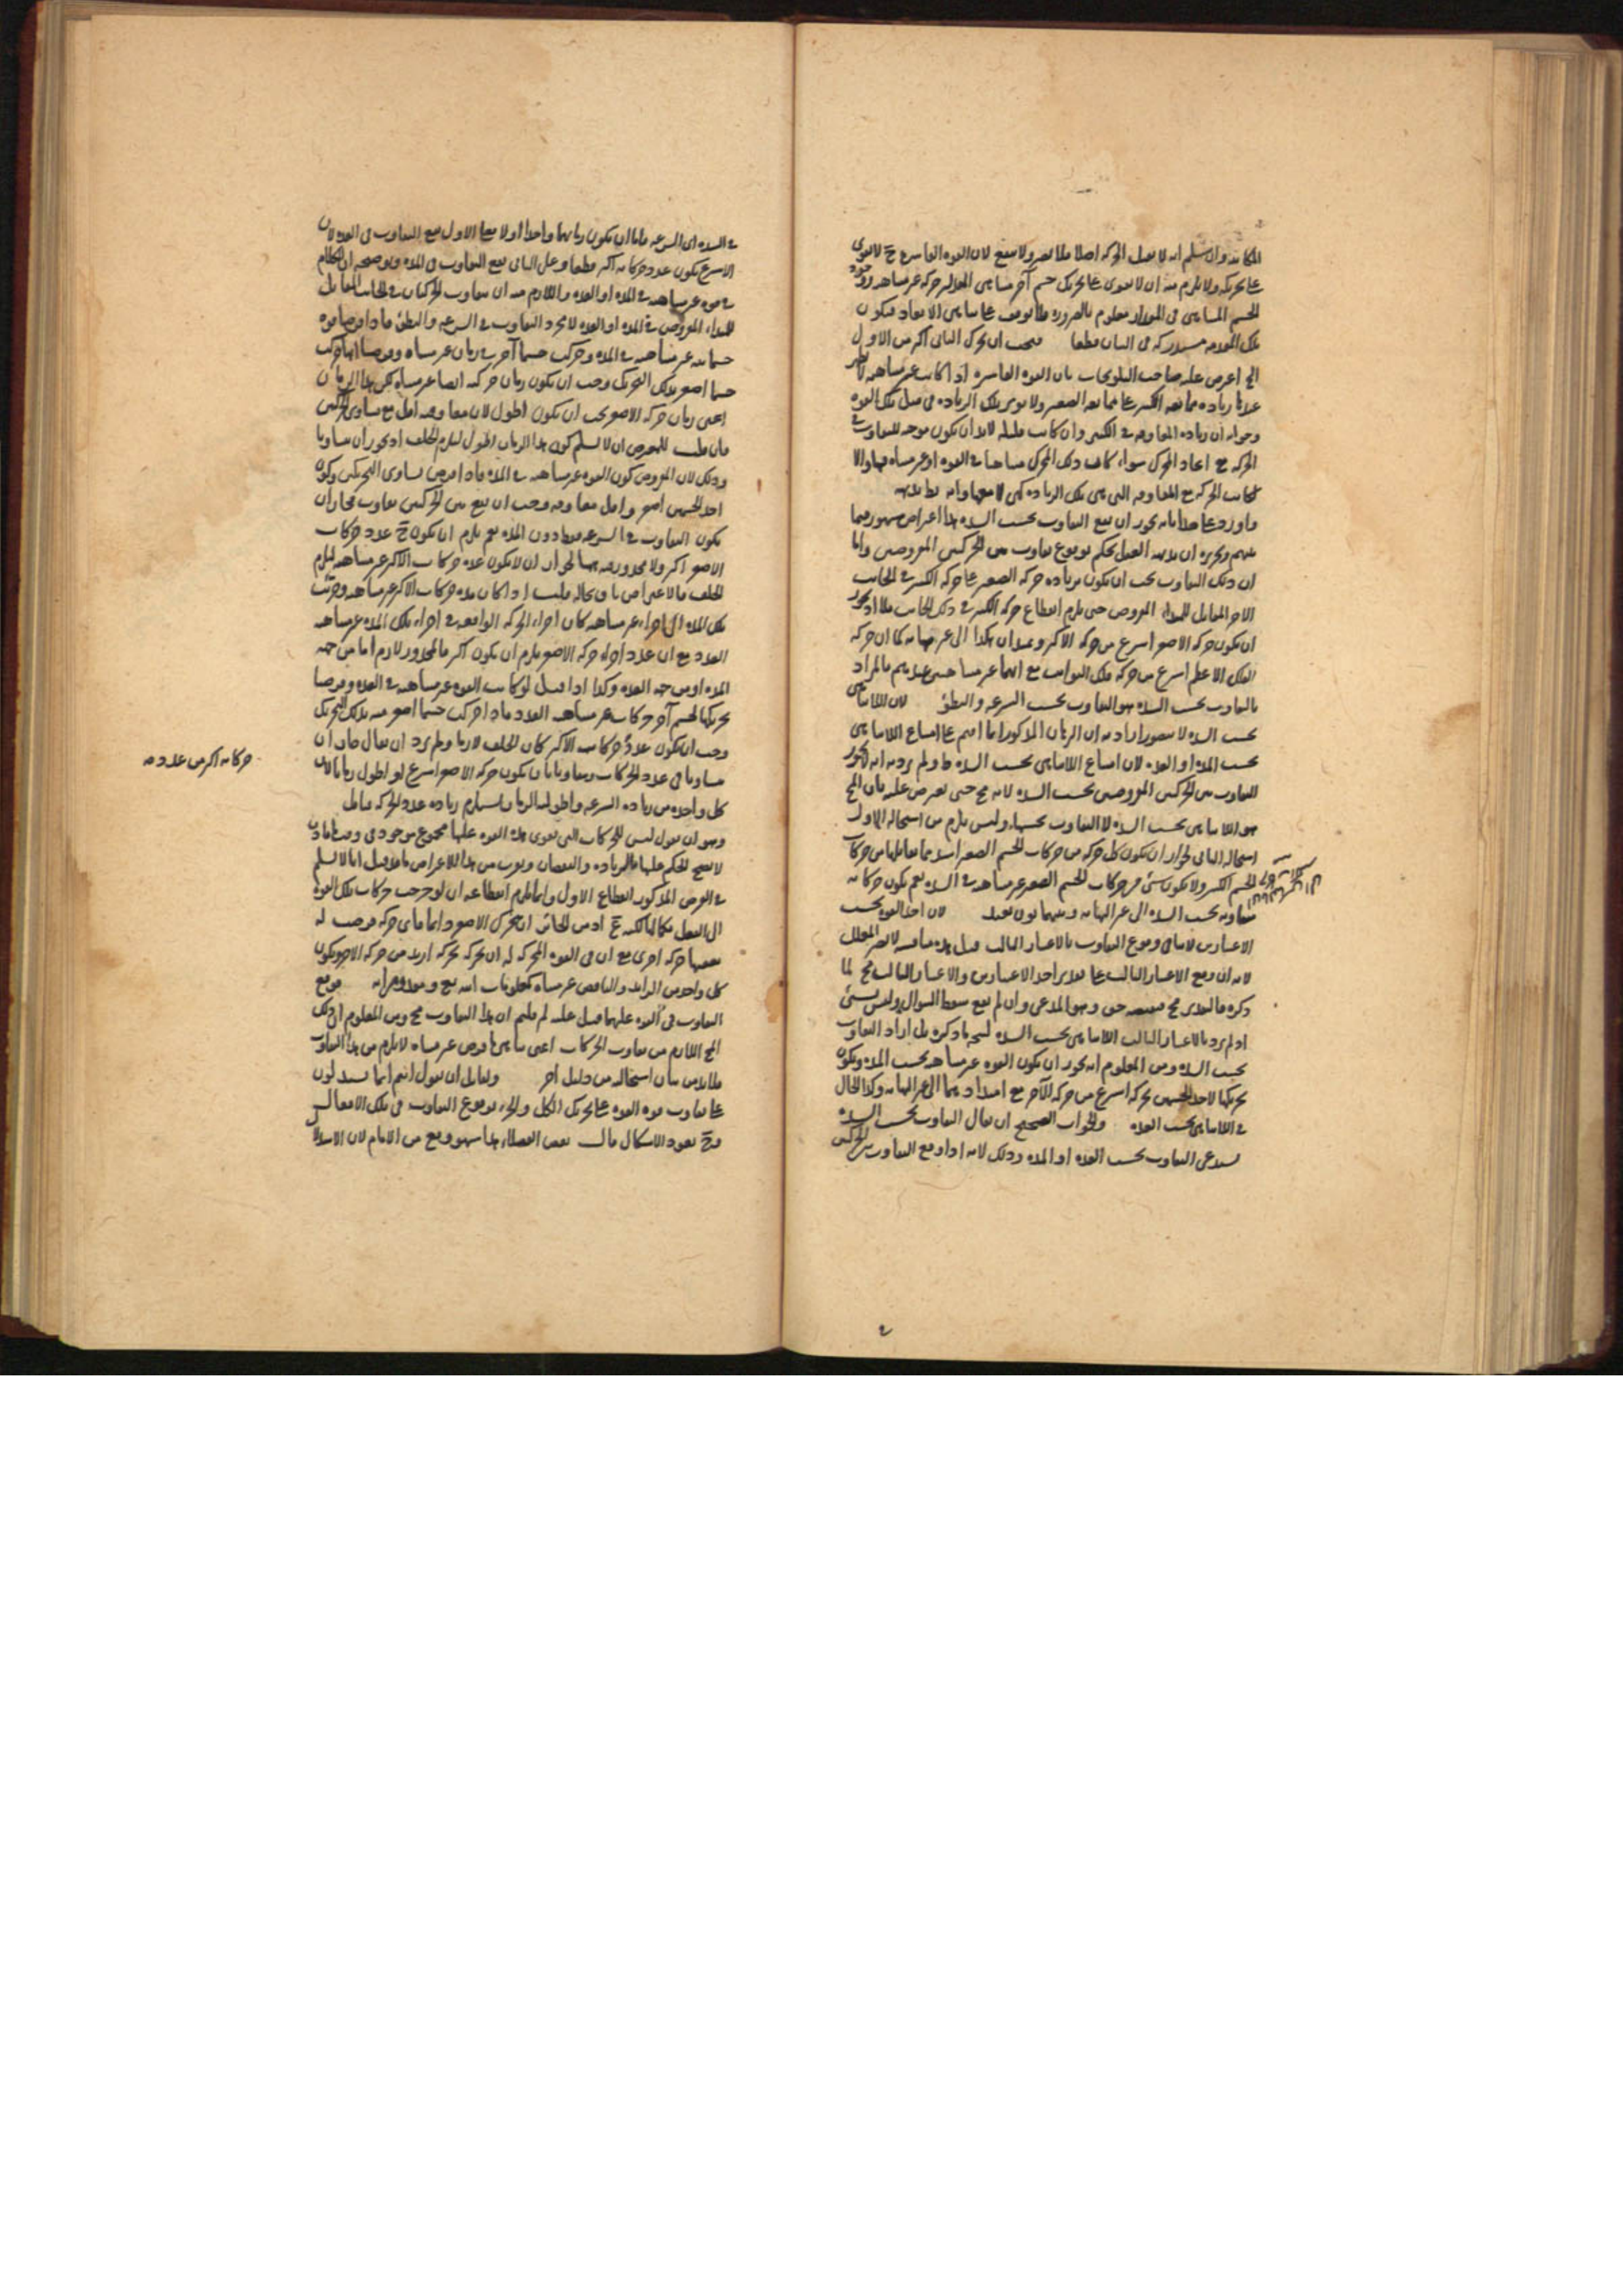 الحركة اصلا
على تحريكه ولا يلزم منه ان لا تقوى على تحريك جسم آخر متناهى المقدار حركة غير متناهية
الجسم المتناهى فى المقدار معلوم بالضرورة
تلك المقدمة مستدركة فى البيان قطعا فيجب ان تحرك الثانى اكثر من الاول
الخ اعترض عليه صاحب التلويحات بان القوة القاسرة اذا كانت غير متناهية
زيادة ممانعة الكبير على ممانعة الصغير
وجوابه ان زيادة المعاوقة فى الكبير وان كانت قليلة لا بد ان تكون موجبة للتفاوت فى
الحركة مع اتحاد المحرك سواء كان ذلك المحرك متناهيا فى القوة او غير متناه فيها والا
لكانت الحركة مع المعاوقة
بانه يجوز ان يقع التفاوت بحسب الشدة هذا اعتراض مشهور فيما
بينهم وتحريره ان بديهة العقل تحكم بوقوع تفاوت بين الحركتين المفروضتين واما
ان ذلك التفاوت يجب ان يكون بزيادة حركة الصغير على حركة الكبير فى الجانب
الآخر المقابل للمبدأ المفروض حتى يلزم انقطاع حركة الكبير فى ذلك الجانب فلا اذ يجوز
ان يكون حركة الاصغر اسرع من حركة الاكبر ويمتدان هكذا الى غير نهاية كما ان حركة
الفلك الاعظم اسرع من حركة فلك الثوابت مع انهما غير متناهيتين عندهم فالمراد
بالتفاوت بحسب الشدة هو التفاوت بحسب السرعة والبطؤ لان اللاتناهى
بحسب الشدة لا يتصور اراد به ان البرهان المذكور انما اقيم على امتناع اللاتناهى
بحسب المدة او العدة لان امتناع اللاتناهى بحسب الشدة ظ ولم يرد به انه لا يجوز
التفاوت بين الحركتين المفروضتين بحسب الشدة لانه مح حتى يعترض عليه بان المح
هو اللاتناهى بحسب الشدة لا التفاوت بحسبها وليس يلزم من استحالة الاول
استحالة الثانى لجواز ان يكون كل حركة من حركات الجسم الصغير اشد مما يقابلها من حركات
الجسم الكبير ولا يكون شئ من حركات الجسم الصغير غير متناهية فى الشدة نعم يكون حركاته
متفاوتة بحسب الشدة الى غير النهاية وبينهما بون بعيد لان اخذ القوة بحسب
الاعتبارين لا ينافى وقوع التفاوت بالاعتبار الثالث قيل هذه مناقشة لا تضر المعلل
لانه ان وقع الاعتبار الثالث على تقدير احد الاعتبارين والاعتبار الثالث مح لما
ذكره فالتقدير مح فنقيضه حق وهو المدعى وان لم يقع سقط السؤال وليس بشئ
اذ لم يرد بالاعتبار الثالث اللاتناهى بحسب الشدة ليتجه ما ذكره بل اراد التفاوت
بحسب الشدة ومن المعلوم انه يجوز ان يكون القوة غير متناهية بحسب المدة ويكون
تحريكها لاحد الجسمين بحركة اسرع من حركة الآخر مع امتدادهما الى غير النهاية وكذا الحال
فى اللاتناهى بحسب العدة والجواب الصحيح ان يقال التفاوت بحسب الشدة
يستدعى التفاوت بحسب العدة او المدة وذلك لانه اذا وقع التفاوت بين الحركتين
فى الشدة اى السرعة فاما ان يكون زمانهما واحدا او لا فعلى الاول يقع التفاوت فى العدة لان
الاسرع يكون عدد حركاته اكثر قطعا وعلى الثانى يقع التفاوت فى المدة وتوضيحه ان الكلام
فى قوة غير متناهية فى المدة او العدة واللازم منه ان يتفاوت الحركتان فى الجانب المقابل
للمبدأ المفروض فى المدة او العدة لا مجرد التفاوت فى السرعة والبطؤ فاذا فرضنا قوة
جسمانية غير متناهية فى المدة وحركت جسما آخر فى زمان غير متناه وفرضنا انها حركت
جسما اصغر بذلك التحريك وجب ان يكون زمان حركته ايضا غير متناه لكن هذا الزمان
اعنى زمان حركة الاصغر يجب ان يكون اطول لان معاوقته اقل مع تساوى التحريكين
فان قلت للمعترض ان لا يسلم كون هذا الزمان اطول ليلزم الخلف اذ يجوز ان يتساويا
وذلك لان المفروض كون القوة غير متناهية فى المدة فاذا فرض تساوى التحريكين وكون
احد الجسمين اصغر واقل معاوقة وجب ان يقع بين الحركتين تفاوت فجاز ان
يكون التفاوت فى السرعة فقط دون المدة نعم يلزم ان يكون ح عدد حركات
الاصغر اكثر ولا محذور فيه ههنا لجواز ان لا يكون عدة حركات الاكبر غير متناهية ليلزم
الخلف فالاعتراض باق بحاله قلت اذا كان مدة حركات الاكبر غير متناهية وجزئت
تلك المدة الى اجزاء غير متناهية كان اجزاء الحركة الواقعة فى اجزاء تلك المدة غير متناهية
العدد مع ان عدد اجزاء حركة الاصغر يلزم ان يكون اكثر فالمحذور لازم اما من جهة
المدة او من جهة العدة وكذا اذا قيل لو كانت القوة غير متناهية فى العدة وفرضنا
تحريكها لجسم آخر حركات غير متناهية العدد فاذا حركت جسما اصغر منه بذلك التحريك
وجب ان يكون عدد حركاته الاكثر كان الخلف لازما ولم يرد ان يقال جاز ان
يتساويا فى عدد الحركات ويتفاوتا بان يكون حركة الاصغر اسرع او اطول زمانا لان
كل واحدة من زيادة السرعة واطولية الزمان يستلزم زيادة عدد الحركة
وهو ان نقول ليس للحركات التى تقوى هذه القوة عليها مجموع موجود فى وقت ما
لا يصح الحكم عليها بالزيادة والنقصان ويقرب من هذا الاعتراض ما قد قيل انا لا نسلم
فى الفرض المذكور انقطاع الاول وانما يلزم انقطاعه ان لو خرجت حركات تلك القوة
الى الفعل بكمالها لكنه مح اذ من الجائز ان يتحرك الاصغر دائما فاى حركة فرضت له
بعدها حركة اخرى مع ان فى القوة المحركة له ان تحركه بحركة ازيد من حركة الآخر ويكون
كل واحد من الزائد والناقص غير متناه كمعلومات الله تع ومقدوراته فوقع
التفاوت فى القوة عليهما قيل عليه لم قلتم ان هذا التفاوت مح ومن المعلوم ان ذلك
المح اللازم من تفاوت الحركات اعنى تناهى ما فرض غير متناه لا يلزم من هذا التفاوت
فلا بد من بيان استحالته من دليل آخر ولقائل ان يقول انتم انما تستدلون
على تفاوت قوة القوة على تحريك الكل والجزء بوقوع التفاوت فى تلك الافعال
وح يعود الاشكال قال بعض الفضلاء هذا سهو وقع من الامام لان الاستدلال
حركاته اكثر من عدد